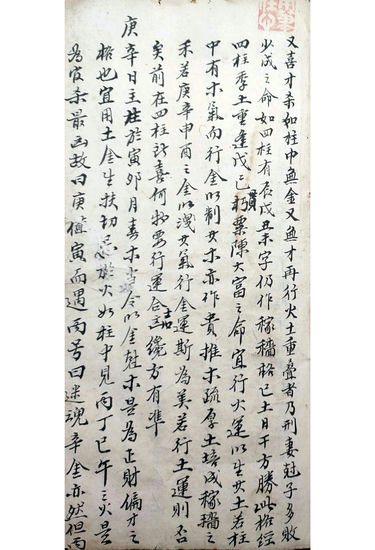 又喜才杀如柱中無金又無才再行火土重叠者乃刑妻尅子多敗
少成之命如四柱有辰戌丑未字仍作稼穡格己土日干方勝此格經
四柱季土重逢戊己朽粟陳大富之命宜行火運以生其土若柱
中有木氣向行金以制其木亦作貴推木疏厚土培成稼穡之
禾若庚辛申酉之金以洩其氣行金運斯為美若行土運則否
矣前在四柱許喜何物要行運合吉纔方有準
庚辛日主柱於寅卯月春木當令以金尅木是為正財偏才之
格也宜用土金生扶切忌於火如柱中見丙丁巳午之火是
為官杀最凶故曰庚值寅而遇丙号曰迷魂辛金亦然但丙